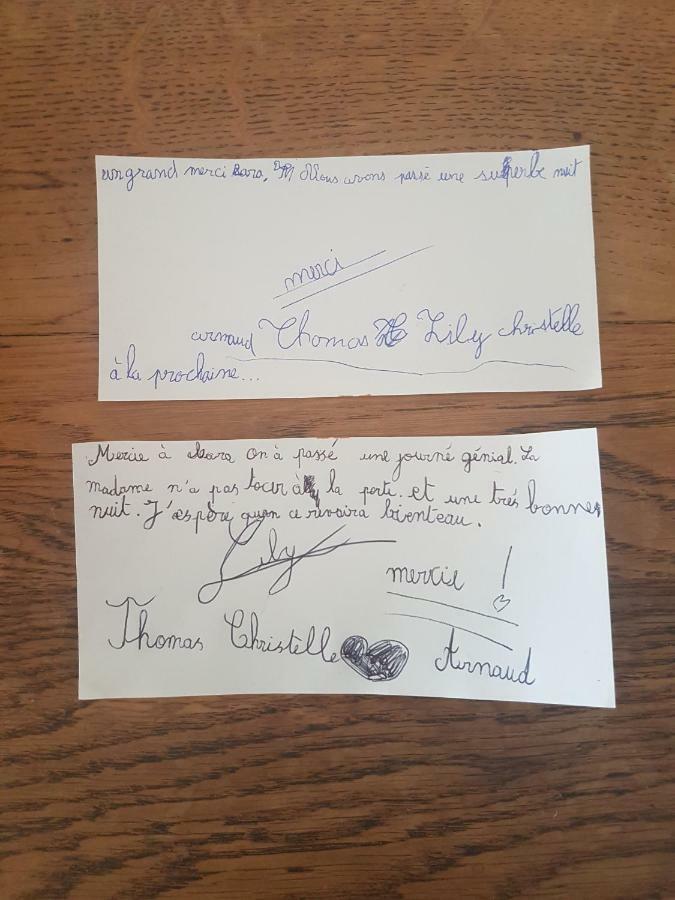 un grand merci Sara, Nous avons passé une superbe nuit
merci
arnaud Thomas Lily christelle
à la prochaine...
Mercie à Sara on à passé une journé génial. La
madame n'a pas tocır à la porte. et une trés bonne
nuit. J'éspère quon ce revoira bienteau.
Lily
mercie !
Thomas Christelle Arnaud